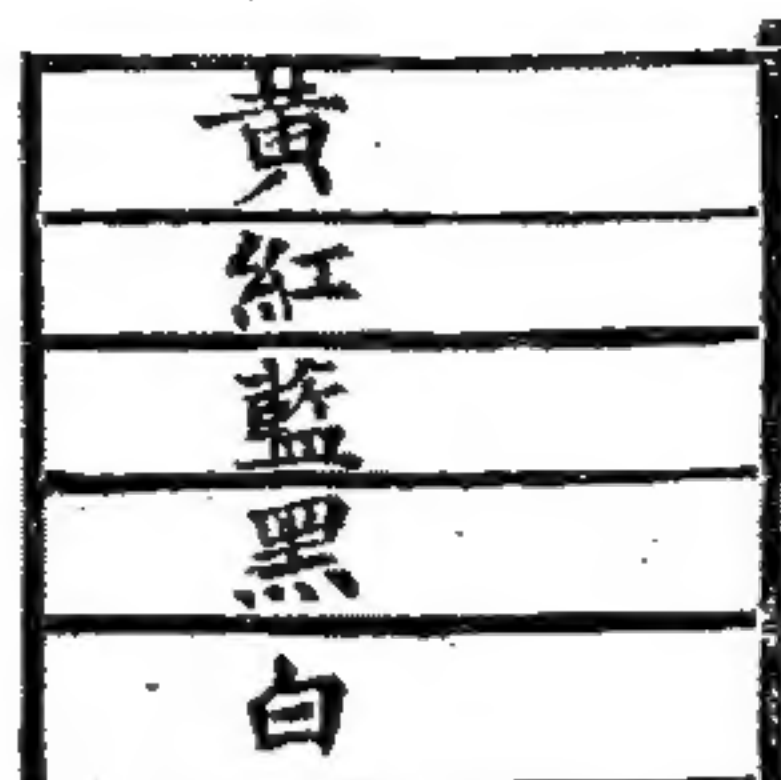 黃
紅
藍
黑
白